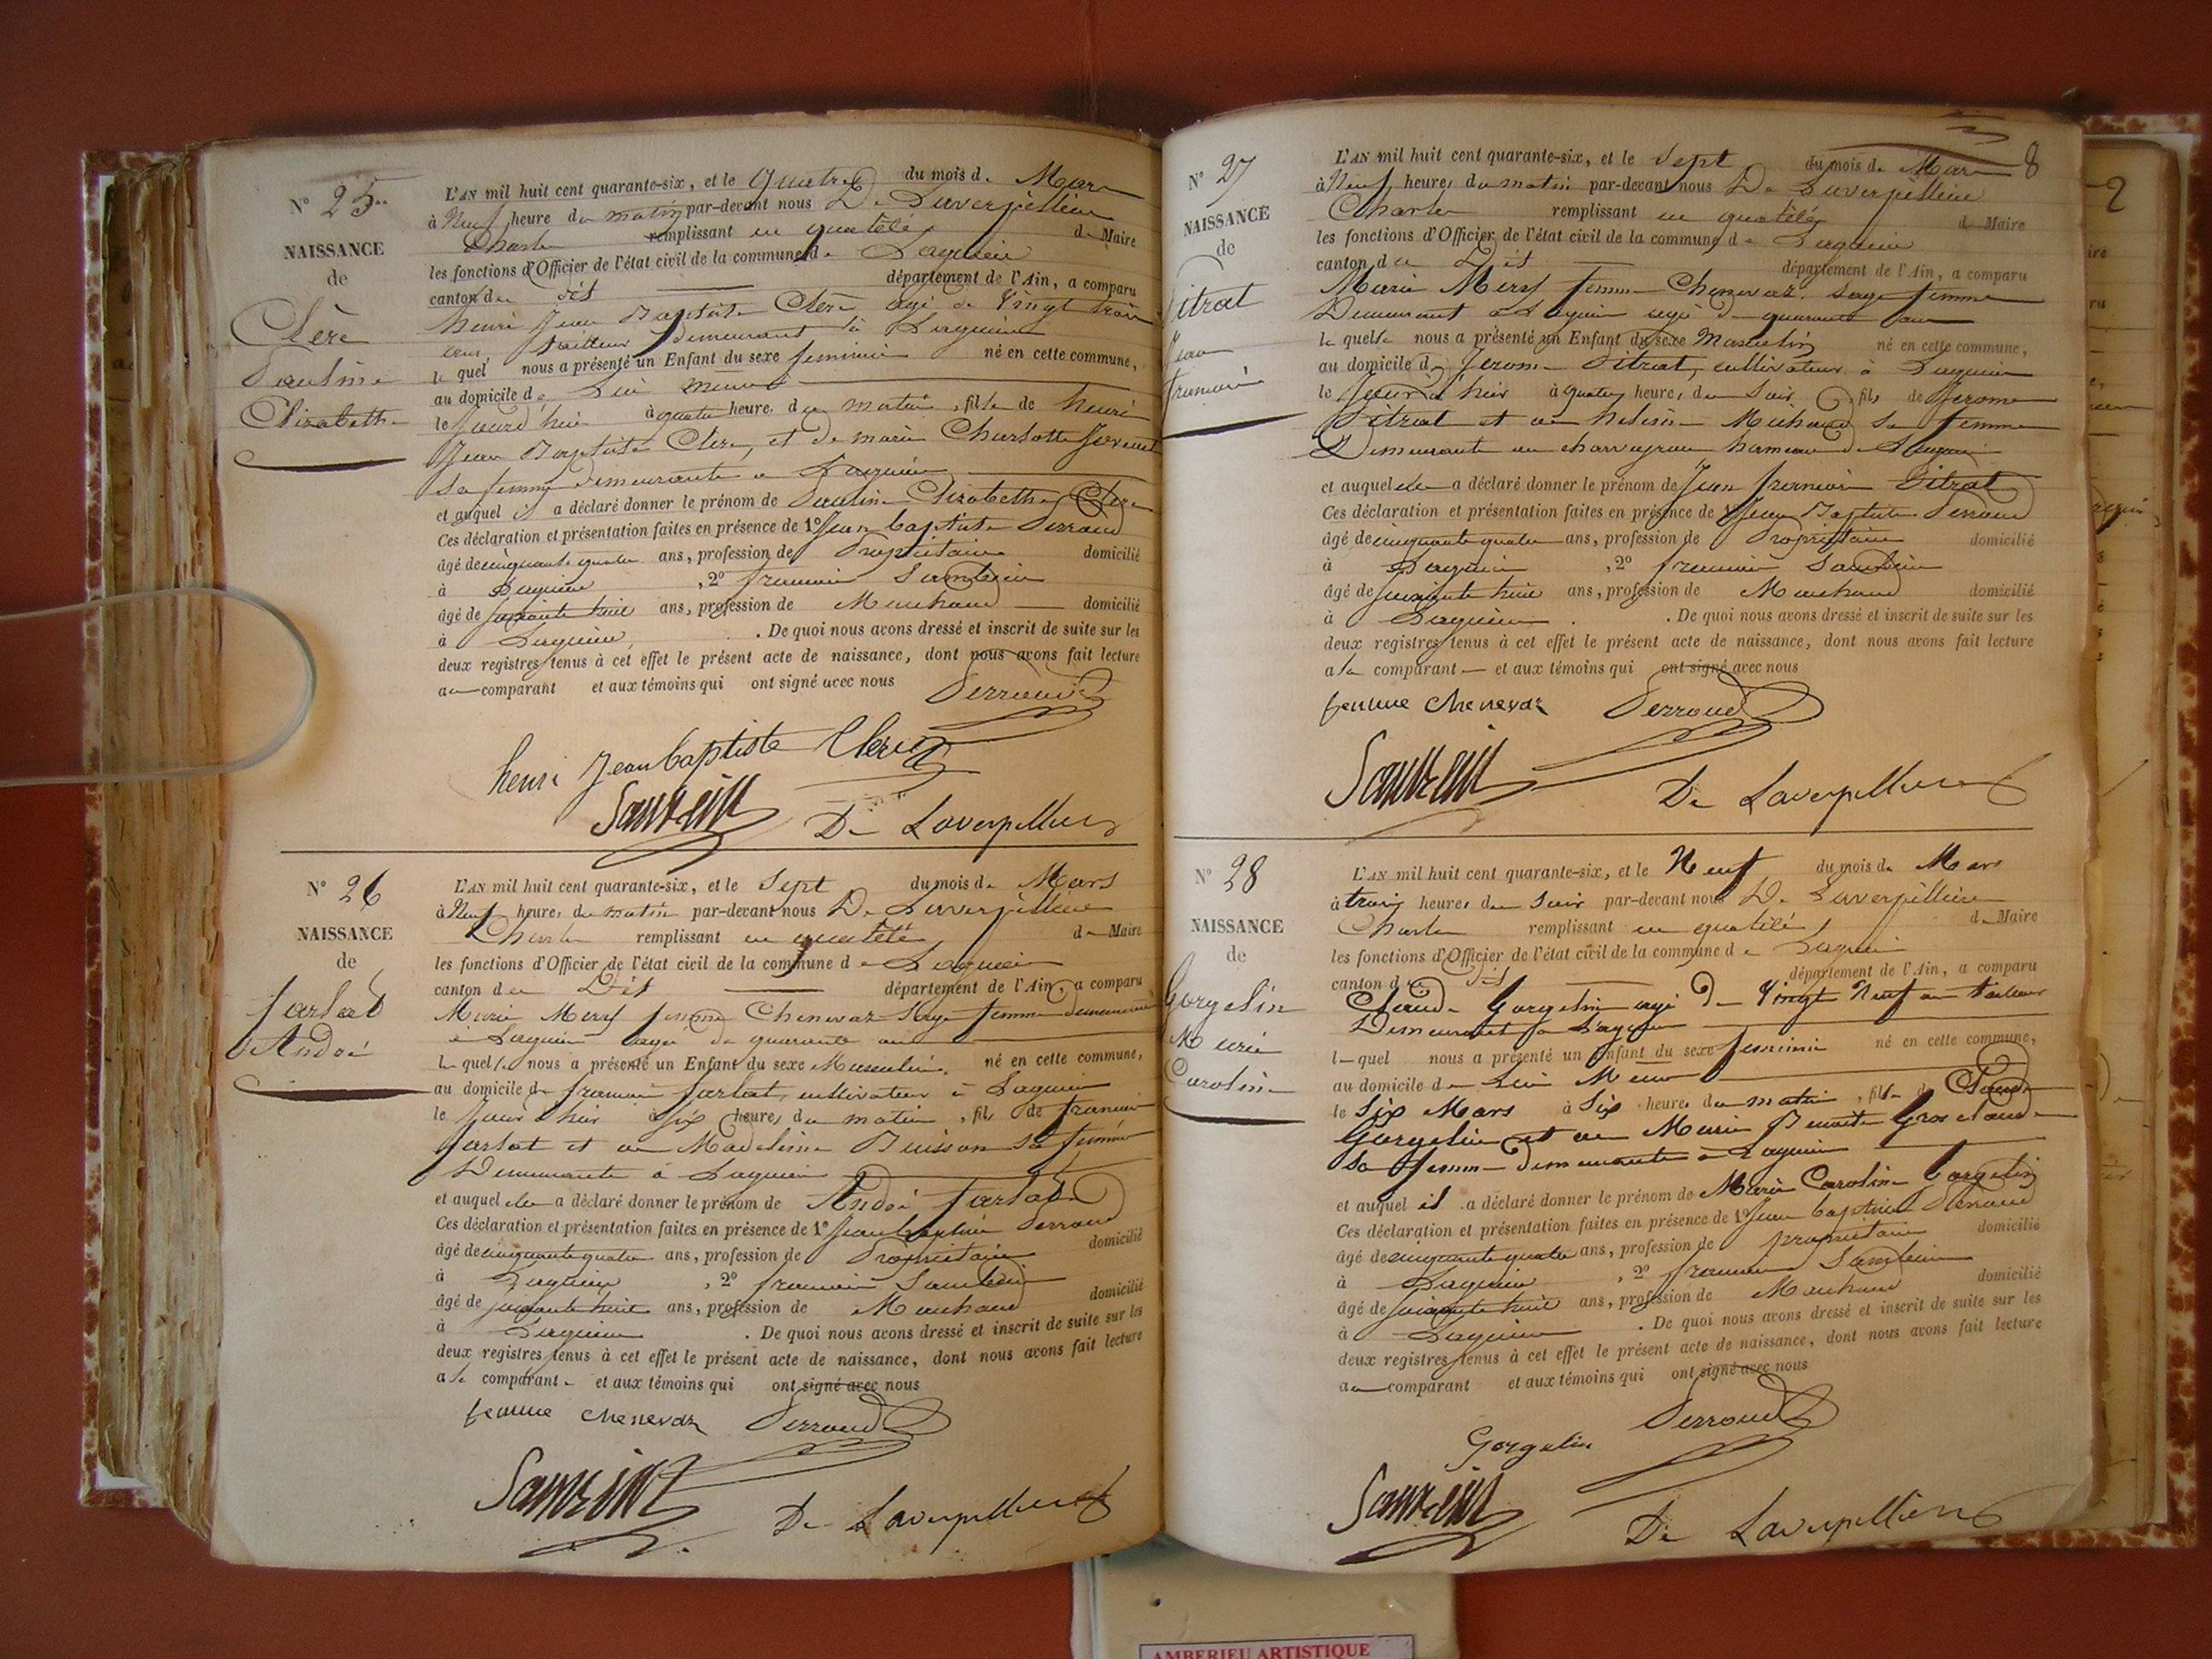 N° 25
NAISSANCE
de
Clère
Pauline
Elizabeth
L'AN mil huit cent quarante-six, et le quatre du mois de Mars
à Neuf heure du matin par-devant nous De Laverpillière
Charles remplissant en qualité de Maire
les fonctions d'Officier de l'état civil de la commune de Lagnieu
canton du dit département de l'Ain, a comparu
henri Jean Baptiste Clère agé de Vingt trois
ans, tailleur demeurant à Lagnieu
lequel nous a présenté un Enfant du sexe feminin né en cette commune,
au domicile de Lui même
le jourd'hui à quatre heure, du matin, fille de henri
Jean Baptiste Clère, et de marie Charlotte
Sa femme demeurante a Lagnieu
et auquel il a déclaré donner le prénom de Pauline Elizabeth Clère
Ces déclaration et présentation faites en présence de 1° Jean baptiste Perraud
âgé de cinquante quatre ans, profession de Propriétaire domicilié
à Lagnieu, 2° francois
âgé de soixante huit ans, profession de Marchand domicilié
à Lagnieu. De quoi nous avons dressé et inscrit de suite sur les
deux registres tenus à cet effet le présent acte de naissance, dont nous avons fait lecture
au comparant et aux témoins qui ont signé avec nous
Perraud
henri Jean baptiste Clère
De Laverpillière
N° 26
NAISSANCE
de
farlat
André
L'AN mil huit cent quarante-six, et le Sept du mois de Mars
à Neuf heures du matin par-devant nous De Laverpillière
Charles remplissant en qualité de Maire
les fonctions d'Officier de l'état civil de la commune de Lagnieu
canton du Dit département de l'Ain, a comparu
Marie Mery femme Chenevaz Sage femme demeurant
à Lagnieu agée de quarante ans
laquelle nous a présenté un Enfant du sexe Masculin, né en cette commune,
au domicile de francois farlat, cultivateur à Lagnieu
le Jourd'hui à Six heures du matin, fils de francois
farlat et de Madeleine Buisson sa femme
Demeurante à Lagnieu
et auquel elle a déclaré donner le prénom de André farlat
Ces déclaration et présentation faites en présence de 1° Jean baptiste Perraud
âgé de cinquante quatre ans, profession de Propriétaire domicilié
à Lagnieu, 2° francois
âgé de soixante huit ans, profession de Marchand domicilié
à Lagnieu. De quoi nous avons dressé et inscrit de suite sur les
deux registres tenus à cet effet le présent acte de naissance, dont nous avons fait lecture
a la comparante et aux témoins qui ont signé avec nous
femme chenevaz Perraud
De Laverpillière
8
N° 27
NAISSANCE
de
Pitrat
Jean
francois
L'AN mil huit cent quarante-six, et le Sept du mois de Mars
à Neuf heures du matin par-devant nous De Laverpillière
Charles remplissant en qualité de Maire
les fonctions d'Officier de l'état civil de la commune de Lagnieu
canton du Dit département de l'Ain, a comparu
Marie Mery femme Chenevaz Sage femme
Demeurant à Lagnieu agée de quarante ans
laquelle nous a présenté un Enfant du sexe Masculin né en cette commune,
au domicile de Jerome Pitrat, cultivateur à Lagnieu
le Jourd'hui à quatre heures du Soir, fils de Jerome
Pitrat et de Michaud Sa femme
Demeurante au hameau de Lagnieu
et auquel elle a déclaré donner le prénom de Jean francois Pitrat
Ces déclaration et présentation faites en présence de 1° Jean Baptiste Perraud
âgé de cinquante quatre ans, profession de Propriétaire domicilié
à Lagnieu, 2° francois
âgé de soixante huit ans, profession de Marchand domicilié
à Lagnieu. De quoi nous avons dressé et inscrit de suite sur les
deux registres tenus à cet effet le présent acte de naissance, dont nous avons fait lecture
a la comparant et aux témoins qui ont signé avec nous
femme chenevaz Perraud
De Laverpillière
N° 28
NAISSANCE
de
Gorgelin
Marie
Caroline
L'AN mil huit cent quarante-six, et le Neuf du mois de Mars
à trois heures du Soir par-devant nous De Laverpillière
Charles remplissant en qualité de Maire
les fonctions d'Officier de l'état civil de la commune de Lagnieu
canton du dit département de l'Ain, a comparu
Claude Gorgelin agé de Vingt Neuf ans tailleur
Demeurant à Lagnieu
lequel nous a présenté un Enfant du sexe feminin né en cette commune,
au domicile de Lui Même
le Six Mars à Six heures du matin, fille de Claude
Gorgelin et de Marie Benoite Gros claude
sa femme demeurante à Lagnieu
et auquel il a déclaré donner le prénom de Marie Caroline Gorgelin
Ces déclaration et présentation faites en présence de 1° Jean baptiste Perraud
âgé de cinquante quatre ans, profession de propriétaire domicilié
à Lagnieu, 2° francois
âgé de soixante huit ans, profession de Marchand domicilié
à Lagnieu. De quoi nous avons dressé et inscrit de suite sur les
deux registres tenus à cet effet le présent acte de naissance, dont nous avons fait lecture
au comparant et aux témoins qui ont signé avec nous
Gorgelin Perraud
De Laverpillière
2
AMBERIEU ARTISTIQUE